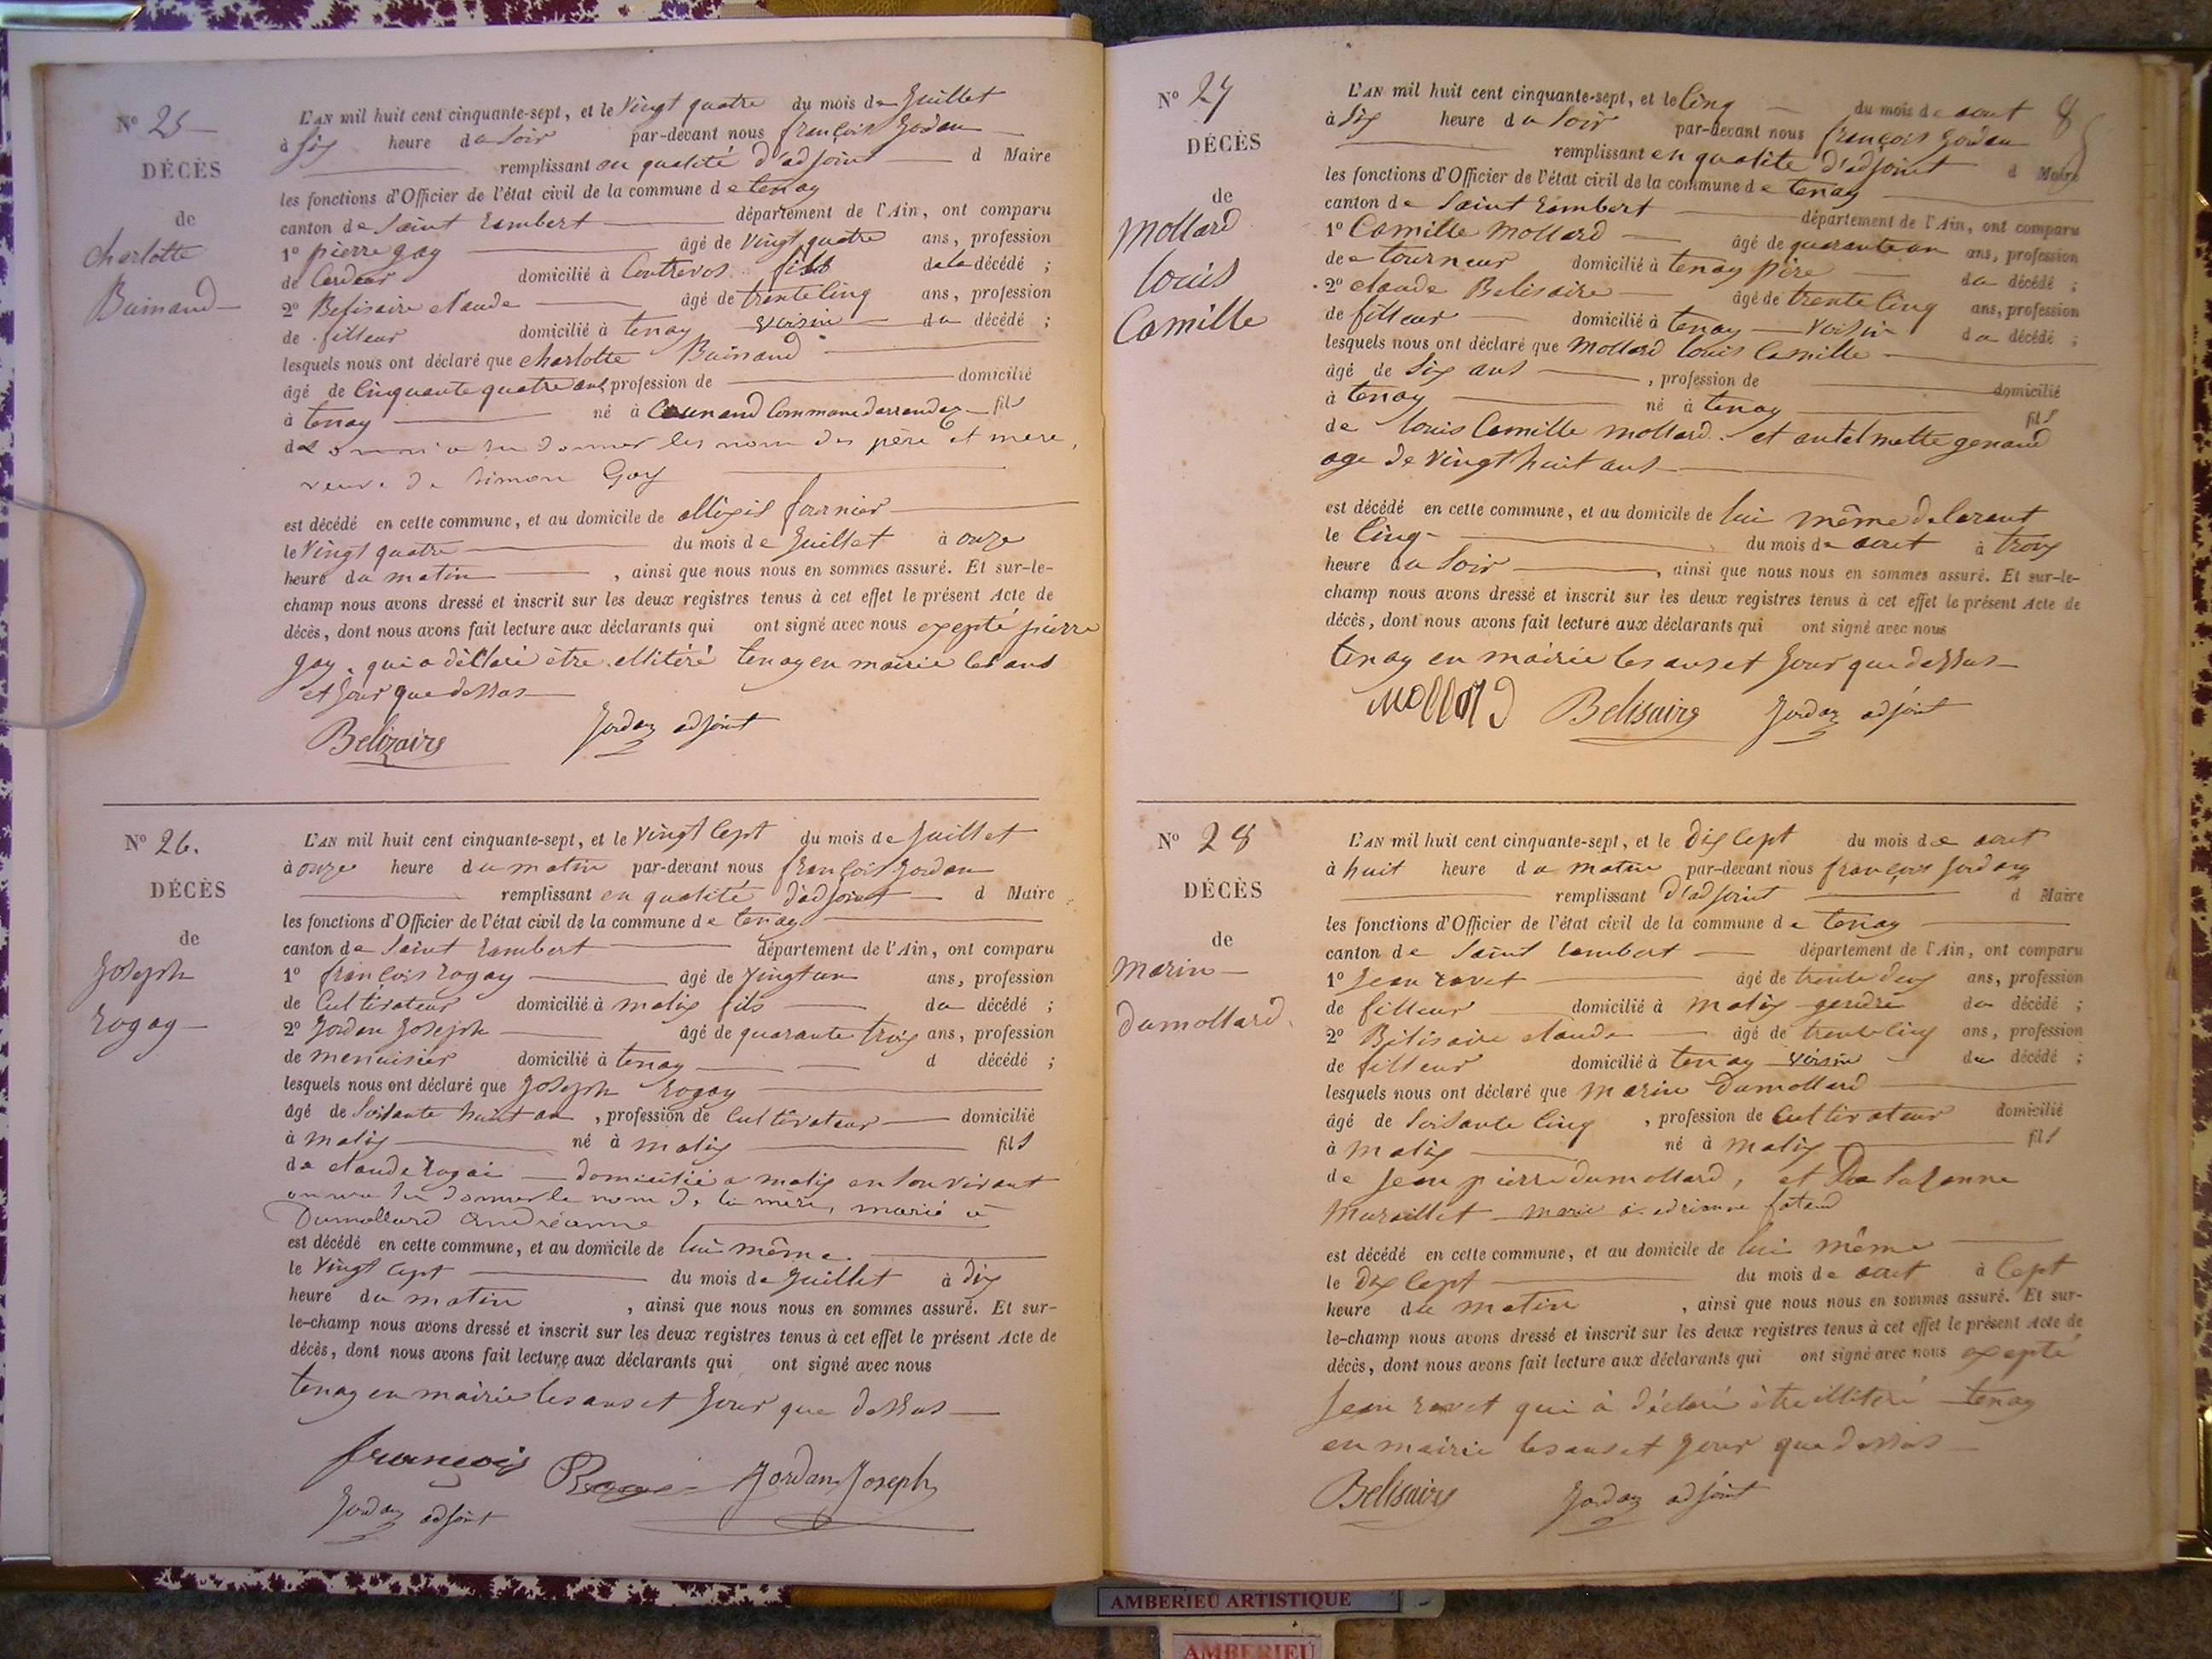 N° 25
DÉCÈS
de
charlotte
Buinand
L'AN mil huit cent cinquante-sept, et le Vingt quatre du mois de Juillet
à Six heure du Soir par-devant nous françois Jordan
remplissant en qualité d'adjoint d Maire
les fonctions d'Officier de l'état civil de la commune de tenay
canton de Saint Rambert département de l'Ain, ont comparu
1° pierre gay âgé de Vingt quatre ans, profession
de Cardeur domicilié à Contrevos fils de la décédé ;
2° Belisaire claude âgé de trente Cinq ans, profession
de filleur domicilié à tenay voisin du décédé ;
lesquels nous ont déclaré que charlotte Buinand
âgé de Cinquante quatre ans, profession de domicilié
à tenay né à Commune darrendaz fils
de on n'a su donner les nom des père et mere,
veuve de Simon Gay
est décédé en cette commune, et au domicile de allexis fournier
le Vingt quatre du mois de Juillet à onze
heure du matin, ainsi que nous nous en sommes assuré. Et sur-le-
champ nous avons dressé et inscrit sur les deux registres tenus à cet effet le présent Acte de
décès, dont nous avons fait lecture aux déclarants qui ont signé avec nous exepté pierre
gay, qui a déclaré être illitéré tenay en mairie les ans
et Jour que dessus
Belizaire Jordan adjoint
N° 26.
DÉCÈS
de
Joseph
rogay
L'AN mil huit cent cinquante-sept, et le Vingt Cept du mois de Juillet
à onze heure du matin par-devant nous françois Jordan
remplissant en qualité d'adjoint d Maire
les fonctions d'Officier de l'état civil de la commune de tenay
canton de Saint rambert département de l'Ain, ont comparu
1° françois rogay âgé de Vingt un ans, profession
de Cultivateur domicilié à malix fils du décédé ;
2° Jordan Joseph âgé de quarante trois ans, profession
de menuisier domicilié à tenay d décédé ;
lesquels nous ont déclaré que Joseph rogay
âgé de Soisante huit an, profession de Cultivateur domicilié
à malix né à malix fils
de claude rogai domicilié a malix en Son vivant
on n'a su donner le nom de la mère, marié à
Dumollard andréanne
est décédé en cette commune, et au domicile de lui même
le Vingt Cept du mois de Juillet à dix
heure du matin, ainsi que nous nous en sommes assuré. Et sur-
le-champ nous avons dressé et inscrit sur les deux registres tenus à cet effet le présent Acte de
décès, dont nous avons fait lecture aux déclarants qui ont signé avec nous
tenay en mairie les ans et Jour que dessus
françois Jordan Joseph
Jordan adjoint
N° 27
DÉCÈS
de
Mollard
louis
Camille
8
L'AN mil huit cent cinquante-sept, et le Cinq du mois de aout
à Six heure du Soir par-devant nous françois Jordan
remplissant en qualité d'adjoint d Maire
les fonctions d'Officier de l'état civil de la commune de tenay
canton de Saint rambert département de l'Ain, ont comparu
1° Camille Mollard âgé de quarante an ans, profession
de tourneur domicilié à tenay père du décédé ;
2° claude Belisaire âgé de trente Cinq ans, profession
de filleur domicilié à tenay Voisin du décédé ;
lesquels nous ont déclaré que Mollard louis Camille
âgé de Six ans, profession de domicilié
à tenay né à tenay fils
de louis Camille mollard et antelmette genaud
age de Vingt huit ans
est décédé en cette commune, et au domicile de lui même delarant
le Cinq du mois de aout à trois
heure du Soir, ainsi que nous nous en sommes assuré. Et sur-le-
champ nous avons dressé et inscrit sur les deux registres tenus à cet effet le présent Acte de
décès, dont nous avons fait lecture aux déclarants qui ont signé avec nous
tenay en mairie les ans et Jour que dessus
Mollard Belisaire Jordan adjoint
N° 28
DÉCÈS
de
Marin
dumollard.
L'AN mil huit cent cinquante-sept, et le dix Cept du mois de aout
à huit heure du matin par-devant nous françois Jordan
remplissant d'adjoint d Maire
les fonctions d'Officier de l'état civil de la commune de tenay
canton de Saint rambert département de l'Ain, ont comparu
1° Jean ravet âgé de trente deux ans, profession
de filleur domicilié à malix gendre du décédé ;
2° Bélisaire claude âgé de trente Cinq ans, profession
de filleur domicilié à tenay voisin du décédé ;
lesquels nous ont déclaré que marin Dumollard
âgé de Soisante Cinq, profession de Cultivateur domicilié
à malix né à malix fils
de Jean pierre dumollard, et De Suzanne
Muraillet marie a adrianne fataud
est décédé en cette commune, et au domicile de lui même
le dix Cept du mois de aout à Cept
heure du matin, ainsi que nous nous en sommes assuré. Et sur-
le-champ nous avons dressé et inscrit sur les deux registres tenus à cet effet le présent Acte de
décès, dont nous avons fait lecture aux déclarants qui ont signé avec nous exepté
Jean ravet qui à déclaré être illitéré tenay
en mairie les ans et Jour que dessus
Belisaire Jordan adjoint
AMBERIEU ARTISTIQUE
AMBERIEU